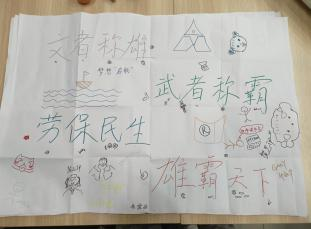 文者称雄
武者称霸
劳保民生
雄霸天下